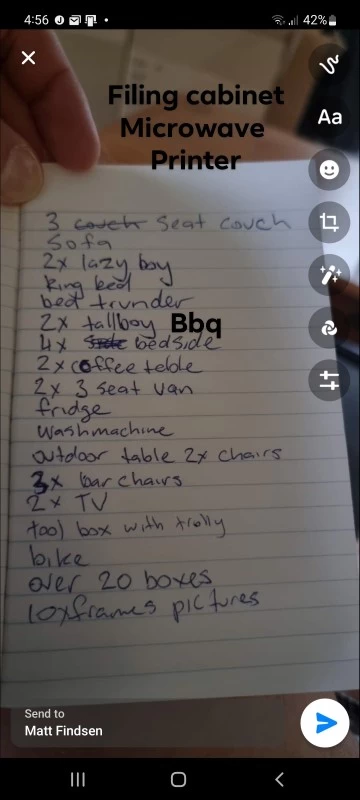 4:56 42%
Filing cabinet
Microwave
Printer
Aa
3 couch seat couch
Sofa
2x lazy boy
King bed
bed trunder
2x tallboy Bbq
4x bedside
2x coffee teble
2x 3 seat van
fridge
washmachine
outdoor table 2x chairs
3x bar chairs
2x TV
tool box with trolly
bike
over 20 boxes
10xframes pictures
Send to
Matt Findsen